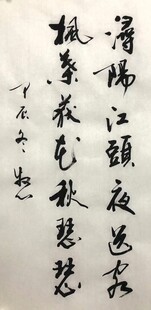 潯陽江頭夜送客
楓葉荻花秋瑟瑟
辰冬